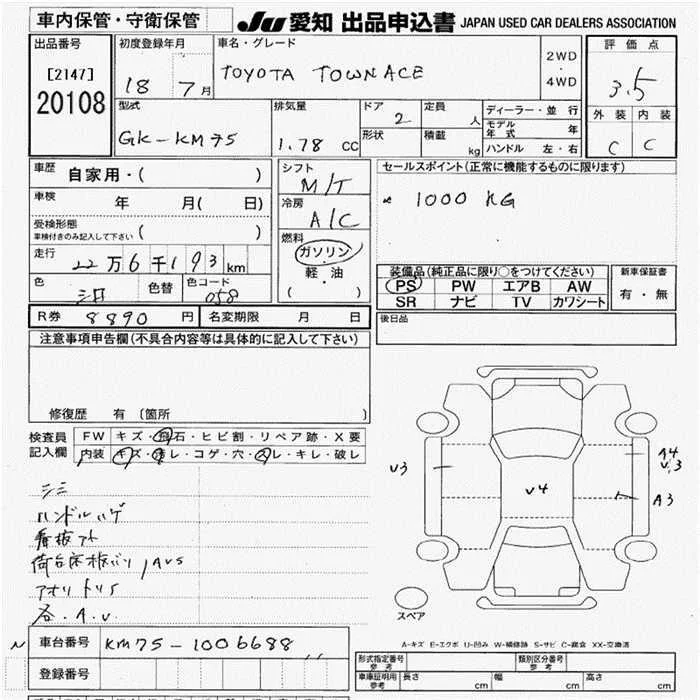 車内保管・守衛保管
JU 愛知 出品申込書 JAPAN USED CAR DEALERS ASSOCIATION
出品番号 初度登録年月 車名・グレード 2WD・4WD 評価点
[2147] 18 7月 TOYOTA TOWNACE 3.5
20108
型式 排気量 ドア 定員 人 ディーラー・並行 外装 内装
GK-KM75 1.78 CC 2 形状 積載 kg モデル年式 年 C C
ハンドル 左・右
車歴 自家用・( ) シフト M/T セールスポイント(正常に機能するものに限ります)
車検 年 月( 日) 冷房 A/C 1000 KG
受検形態 ( )
車検付きのみ記入して下さい
走行 22万6千193km 燃料 ガソリン・軽油 ( )
装備品(純正品に限り○をつけてください) 新車保証書
色 シロ 色替 色コード 058 PS PW エアB AW 有・無
SR ナビ TV カワシート
R券 8890円 名変期限 月 日 後日品
注意事項申告欄(不具合内容等は具体的に記入して下さい)
修復歴 有 (箇所 )
検査員記入欄 FW キズ・飛石・ヒビ割・リペア跡・X要
内装 キズ・汚レ・コゲ・穴・スレ・キレ・破レ
シミ
ハンドルハゲ
看板アト
荷台床板バリ, AUS
アオリトリS
各.A.U.
V3
V4
A4
V.3
A3
スペア
A-キズ E-エクボ U-凹み W-補修跡 S-サビ C-腐食 XX-交換済
N 車台番号 KM75-1006688
登録番号
形式指定番号 参考 類別区分番号 参考
車庫証明用 参考 長さ cm 幅 cm 高さ cm